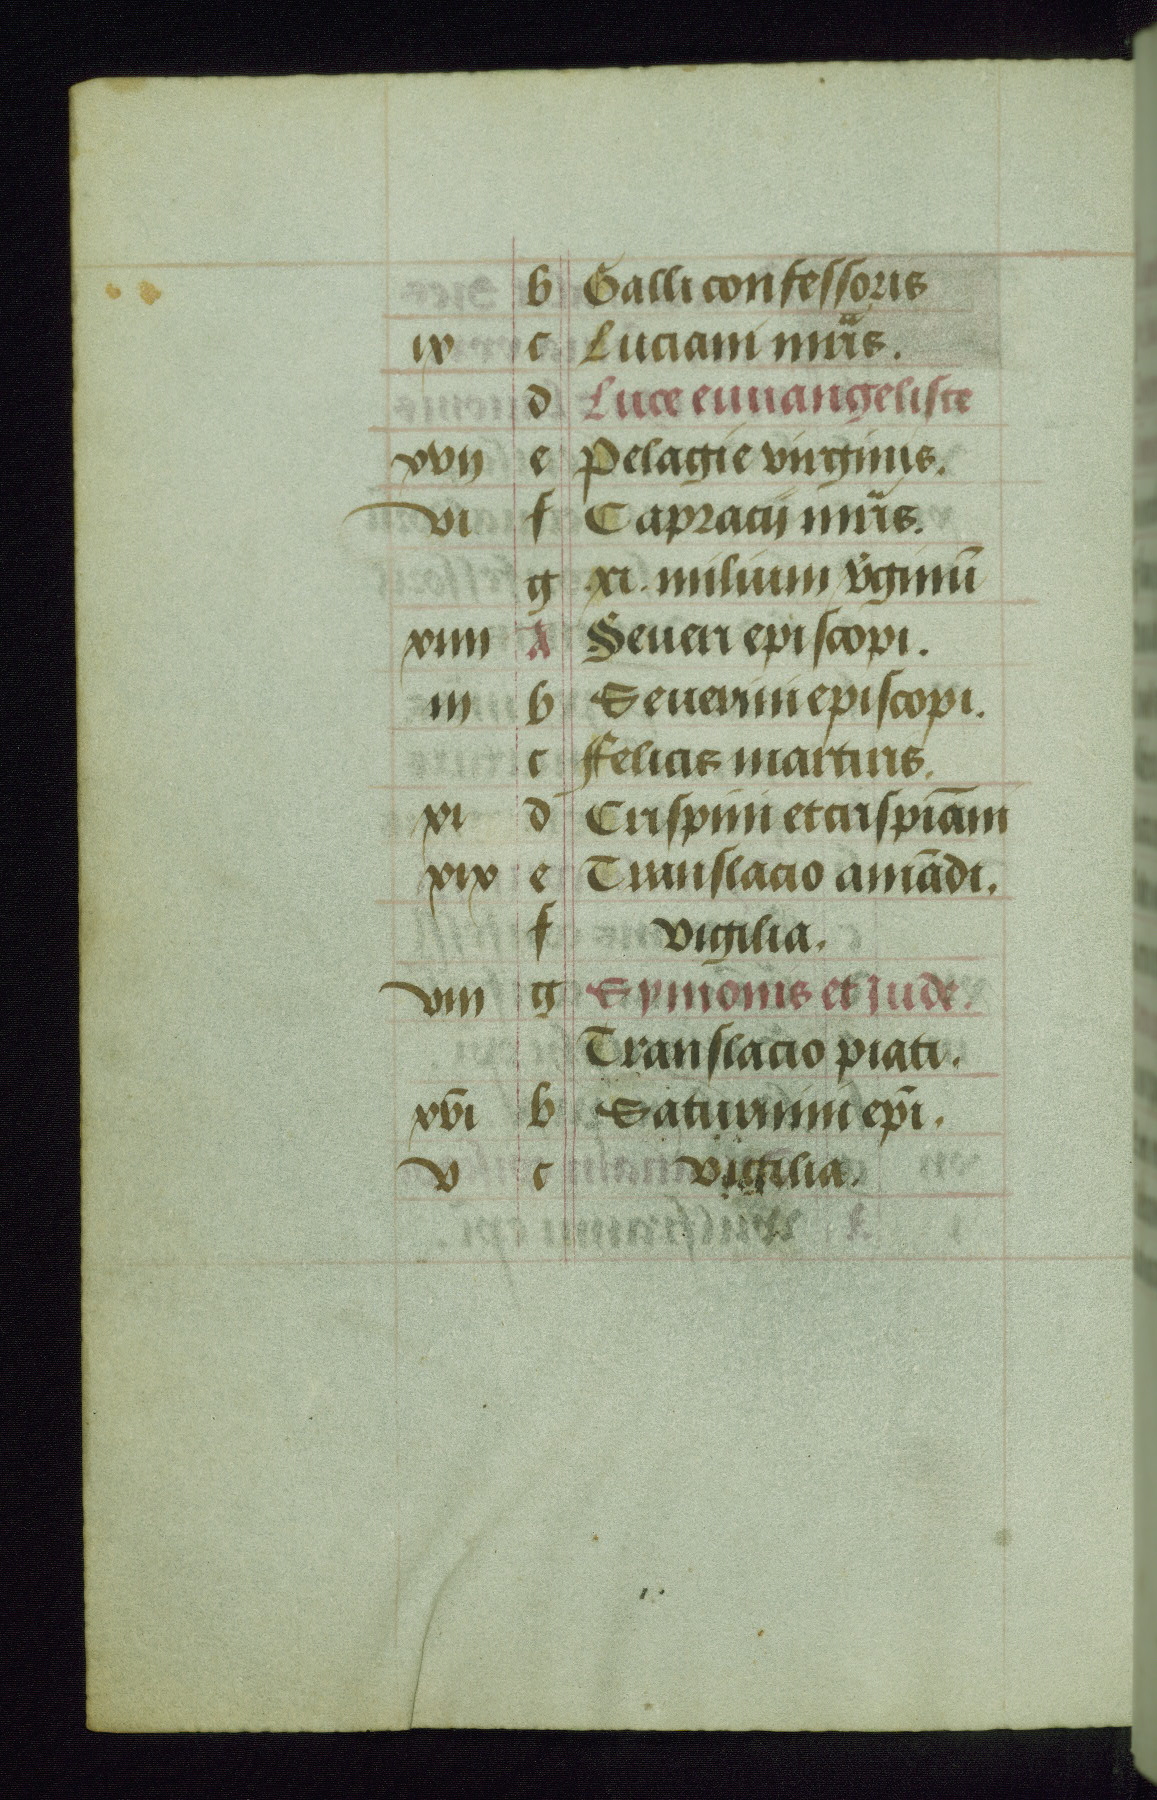 b Galli confessoris
ix c Luciani mr̃is.
d Luce euuangeliste
xvij e Pelagie virginis.
vi f Capracij mr̃is.
g .xi. milium v̓ginũ
xiiii A Seueri episcopi.
iii b Seuerini episcopi.
c ffelicis martiris.
xi d Crispini et crispiãni
xix e Translacio amãdi.
f vigilia.
viii g Symonis et Jude.
Translacio piati.
xvi b Saturnini epĩ.
v c vigilia.